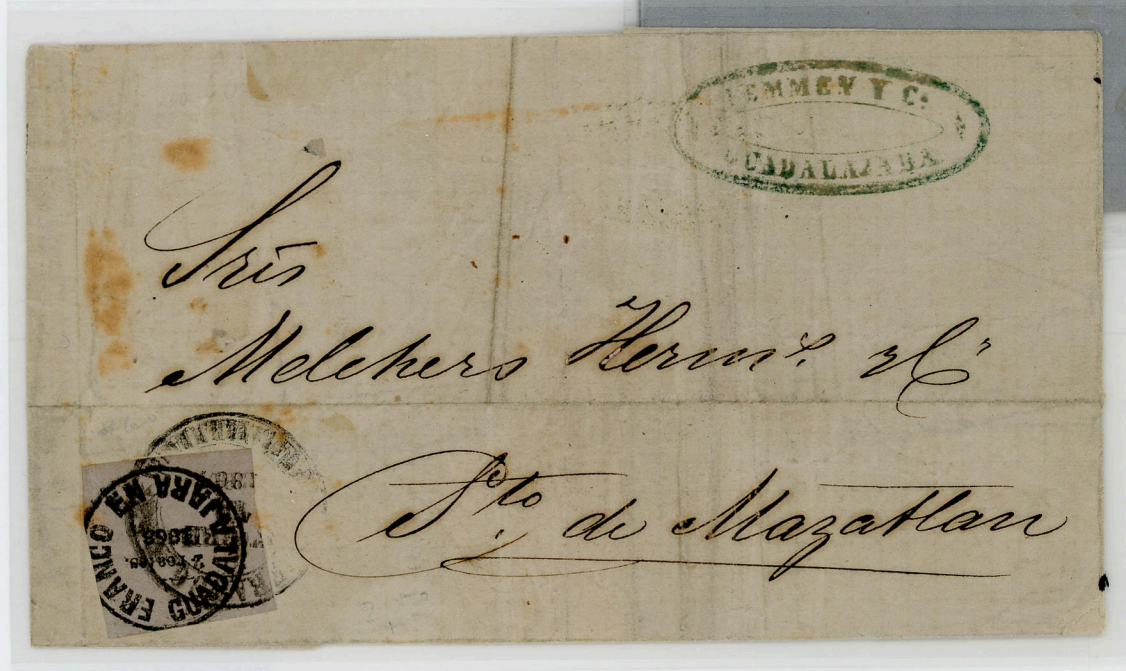 LEMMEN Y Cª
GUADALAJARA
Srēs
Melchers Hermˢ. y Cª
Pto. de Mazatlan
FRANCO EN
GUADALAJARA
2 reales.
1868